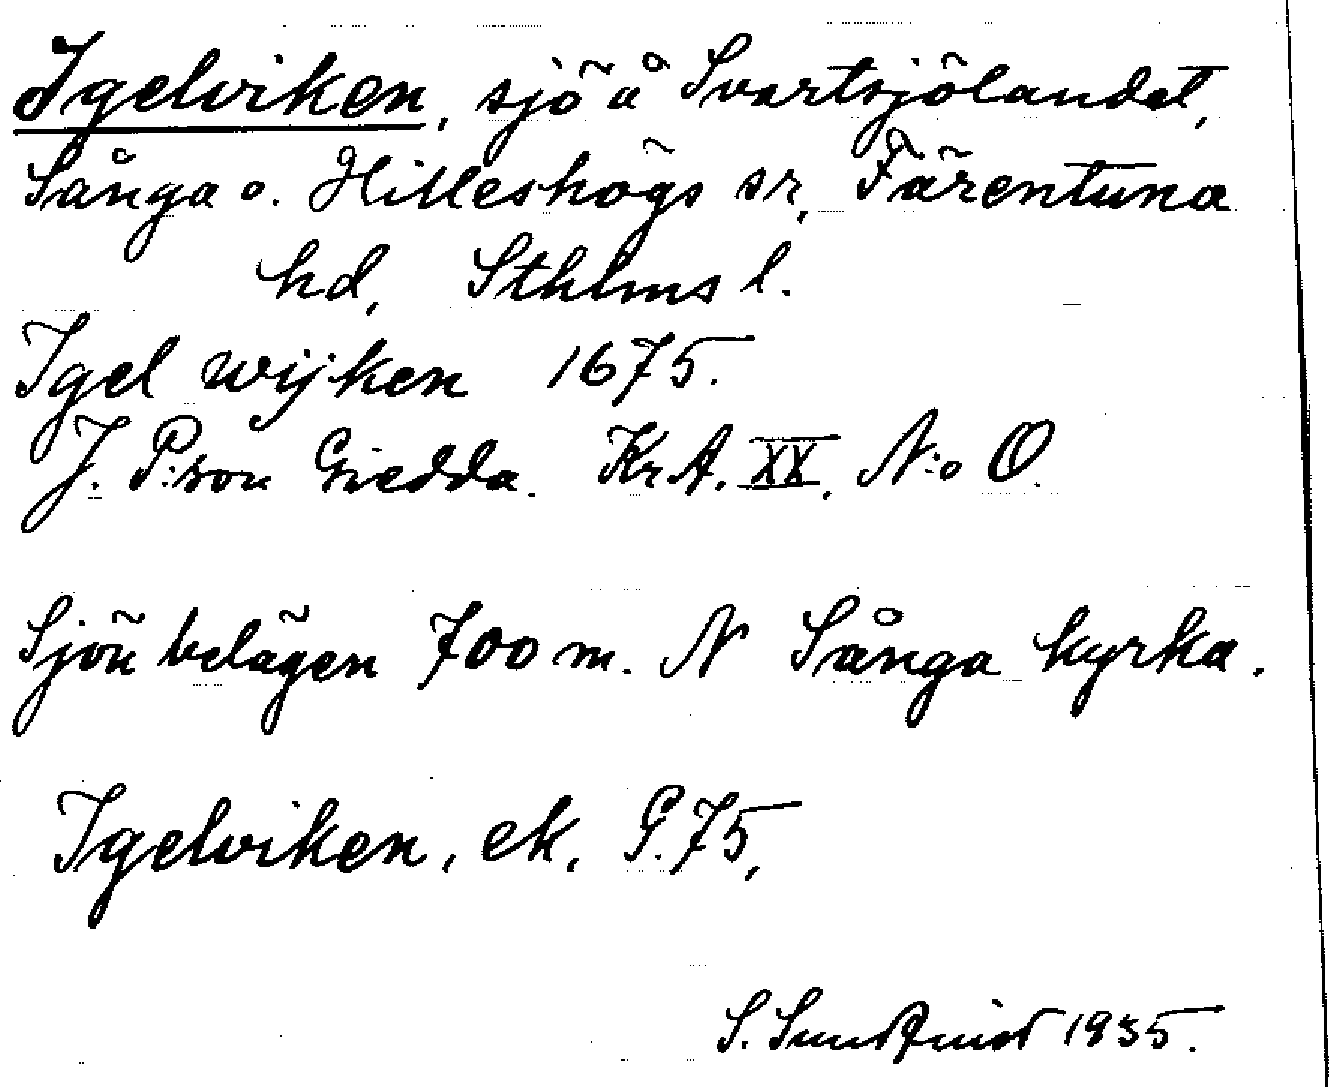 Igelviken, sjö å Svartsjölandet,
Sånga o. Hilleshögs sr, Färentuna
hd, Sthlms l.
Igel wijken 1675.
J. P:son Giedda. KrA. XX, N:o O.
Sjön belägen 700 m. N Sånga kyrka.
Igelviken, ek. G. 75,
S. Sundquist 1935.